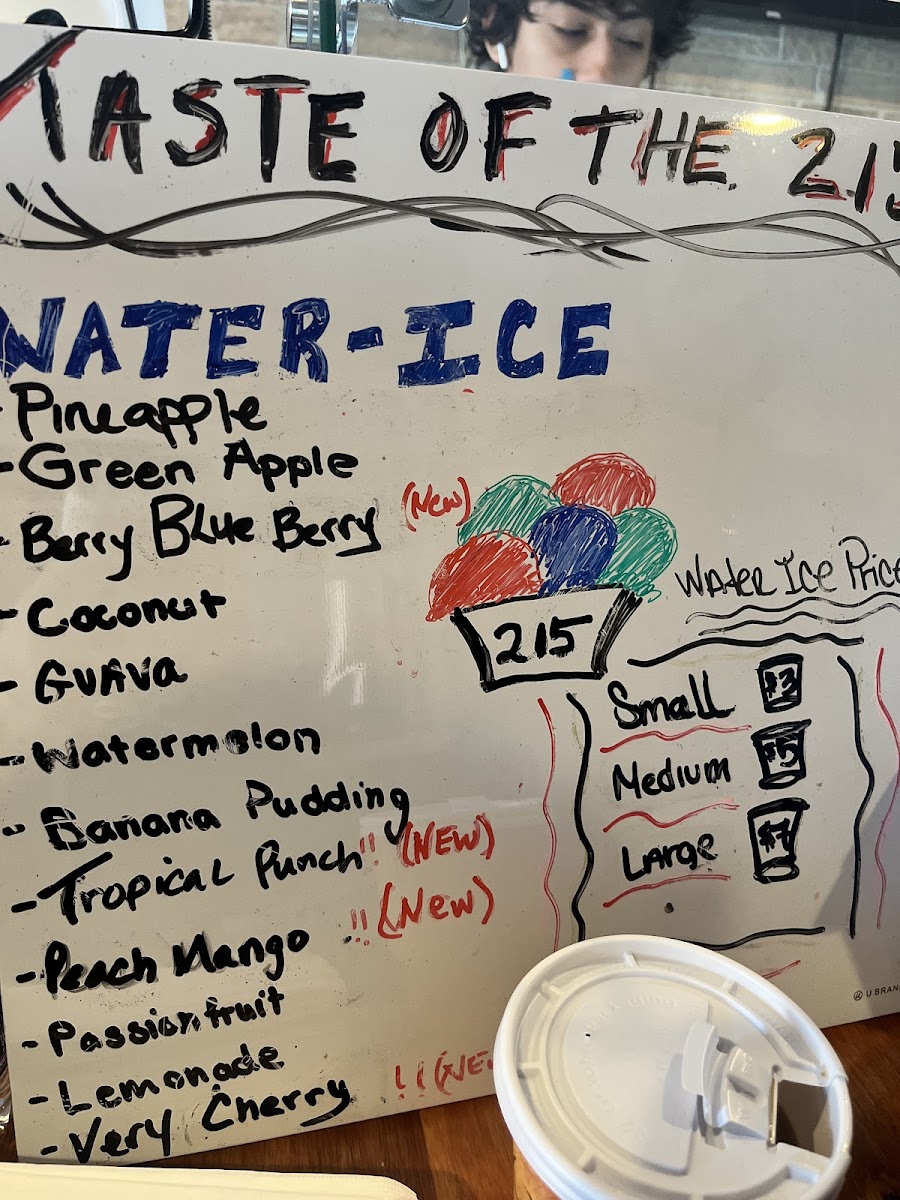 TASTE OF THE 215
WATER-ICE
- Pineapple
- Green Apple
- Berry Blue Berry (New)
- Coconut
- GUAVa
- Watermelon
- Banana Pudding
- Tropical Punch!! (NEW)
- Peach Mango !! (New)
- Passionfruit
- Lemonade
- Very Cherry !! (NEW
215
Water Ice Price
Small $3
Medium $5
Large $7
U BRAN